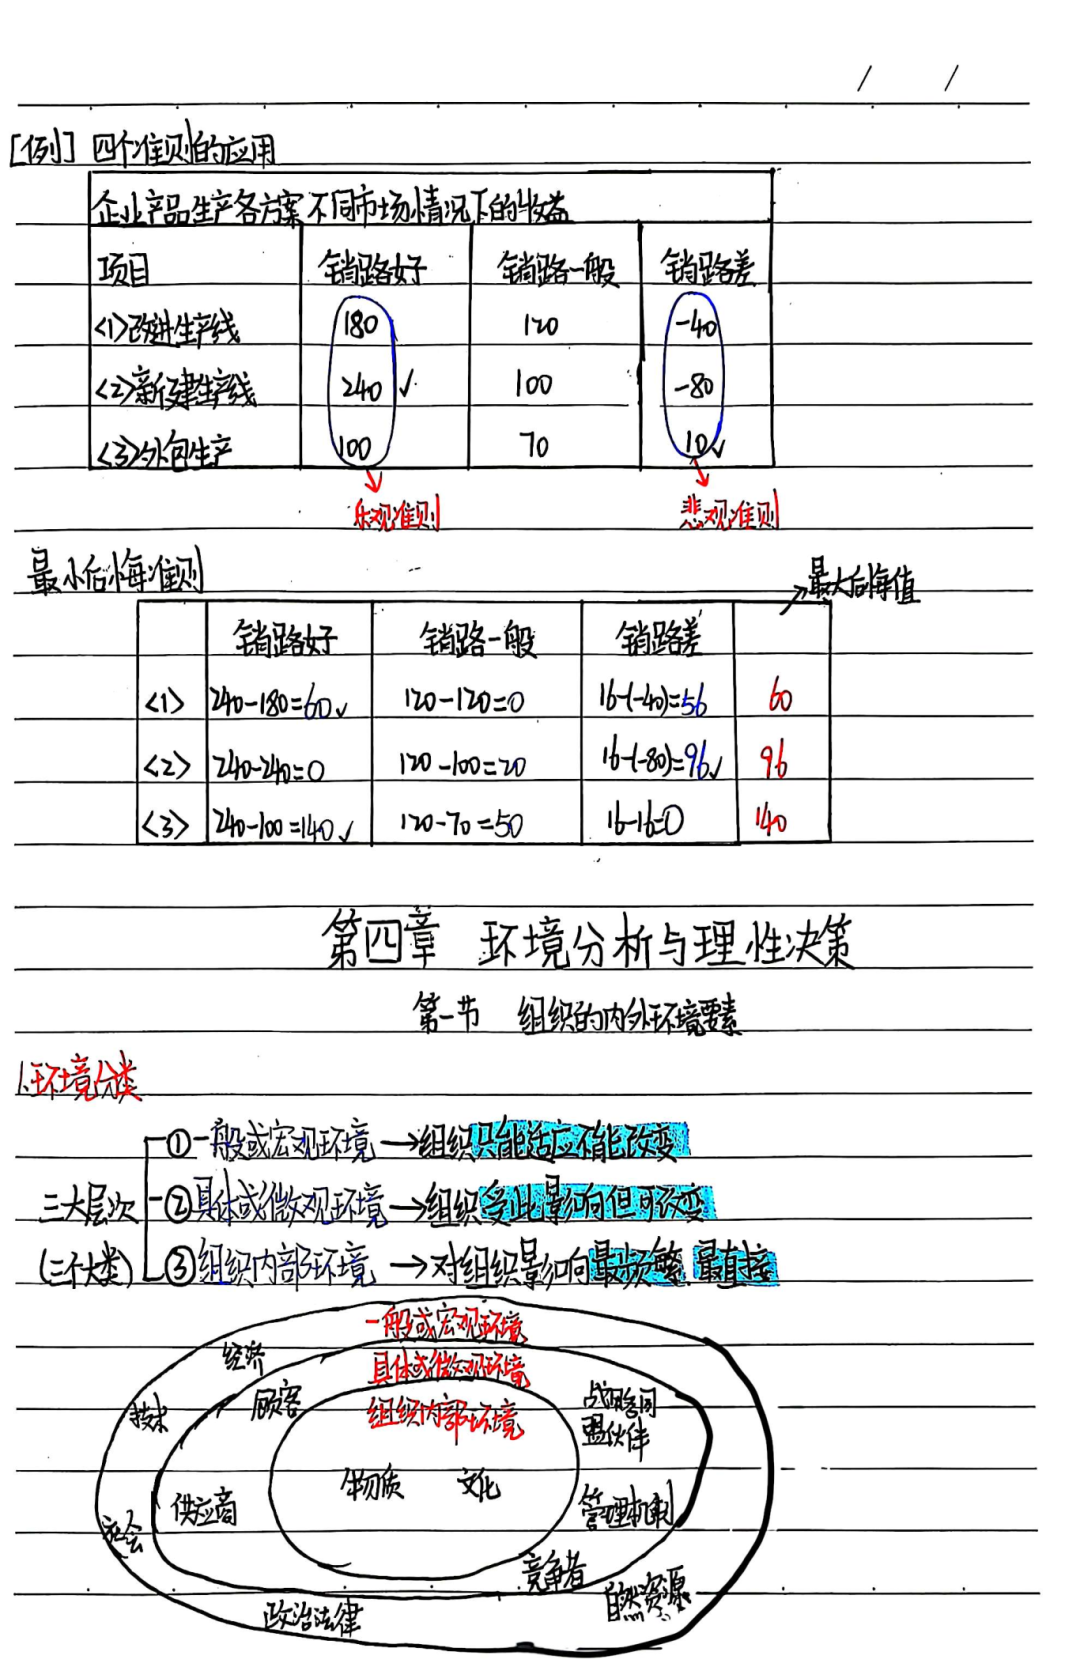 [例] 四个准则的应用
企业产品生产各方案不同市场情况下的收益
项目 销路好 销路一般 销路差
<1>改进生产线 180 120 -40
<2>新建生产线 240 ✓ 100 -80
<3>外包生产 100 70 10✓
乐观准则 悲观准则
最小后悔准则 最大后悔值
销路好 销路一般 销路差
<1> 240-180=60✓ 120-120=0 16-(-40)=56 60
<2> 240-240=0 120-100=20 16-(-80)=96✓ 96
<3> 240-100=140✓ 120-70=50 16-16=0 140
第四章 环境分析与理性决策
第一节 组织的内外环境要素
1.环境分类
①一般或宏观环境→组织只能适应不能改变
三大层次 ②具体或微观环境→组织受此影响但可改变
(三个大类) ③组织内部环境→对组织影响最频繁、最直接
一般或宏观环境
经济 具体或微观环境
技术 顾客 组织内部环境 战略同
盟伙伴
物质 文化
供应商 管理机制
社会 竞争者
政治法律 自然资源